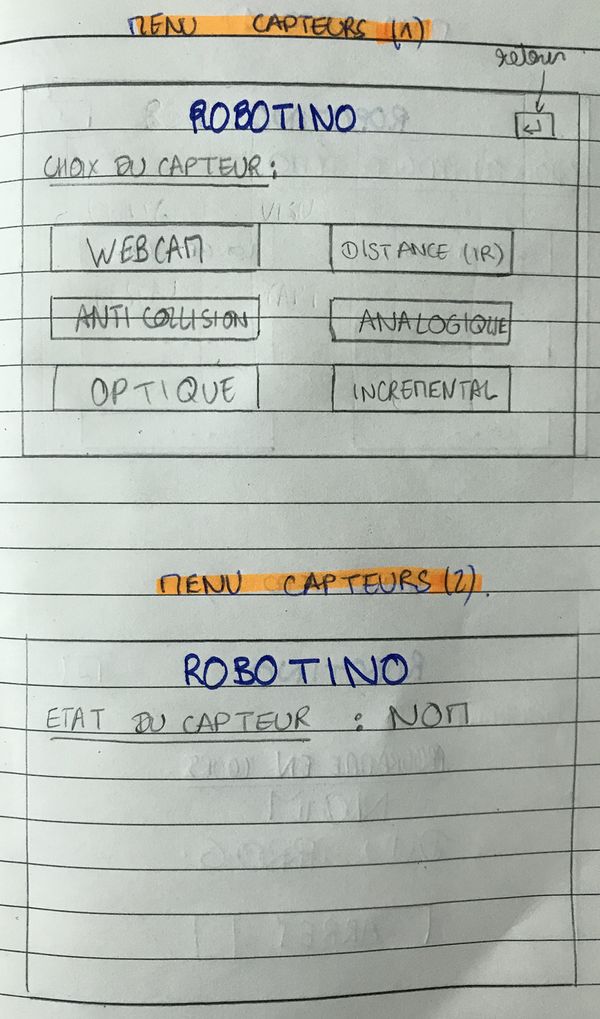 MENU CAPTEURS (1)
retour
ROBOTINO
CHOIX DU CAPTEUR :
WEBCAM DISTANCE (IR)
ANTI COLLISION ANALOGIQUE
OPTIQUE INCREMENTAL
MENU CAPTEURS (2).
ROBOTINO
ETAT DU CAPTEUR : NOM